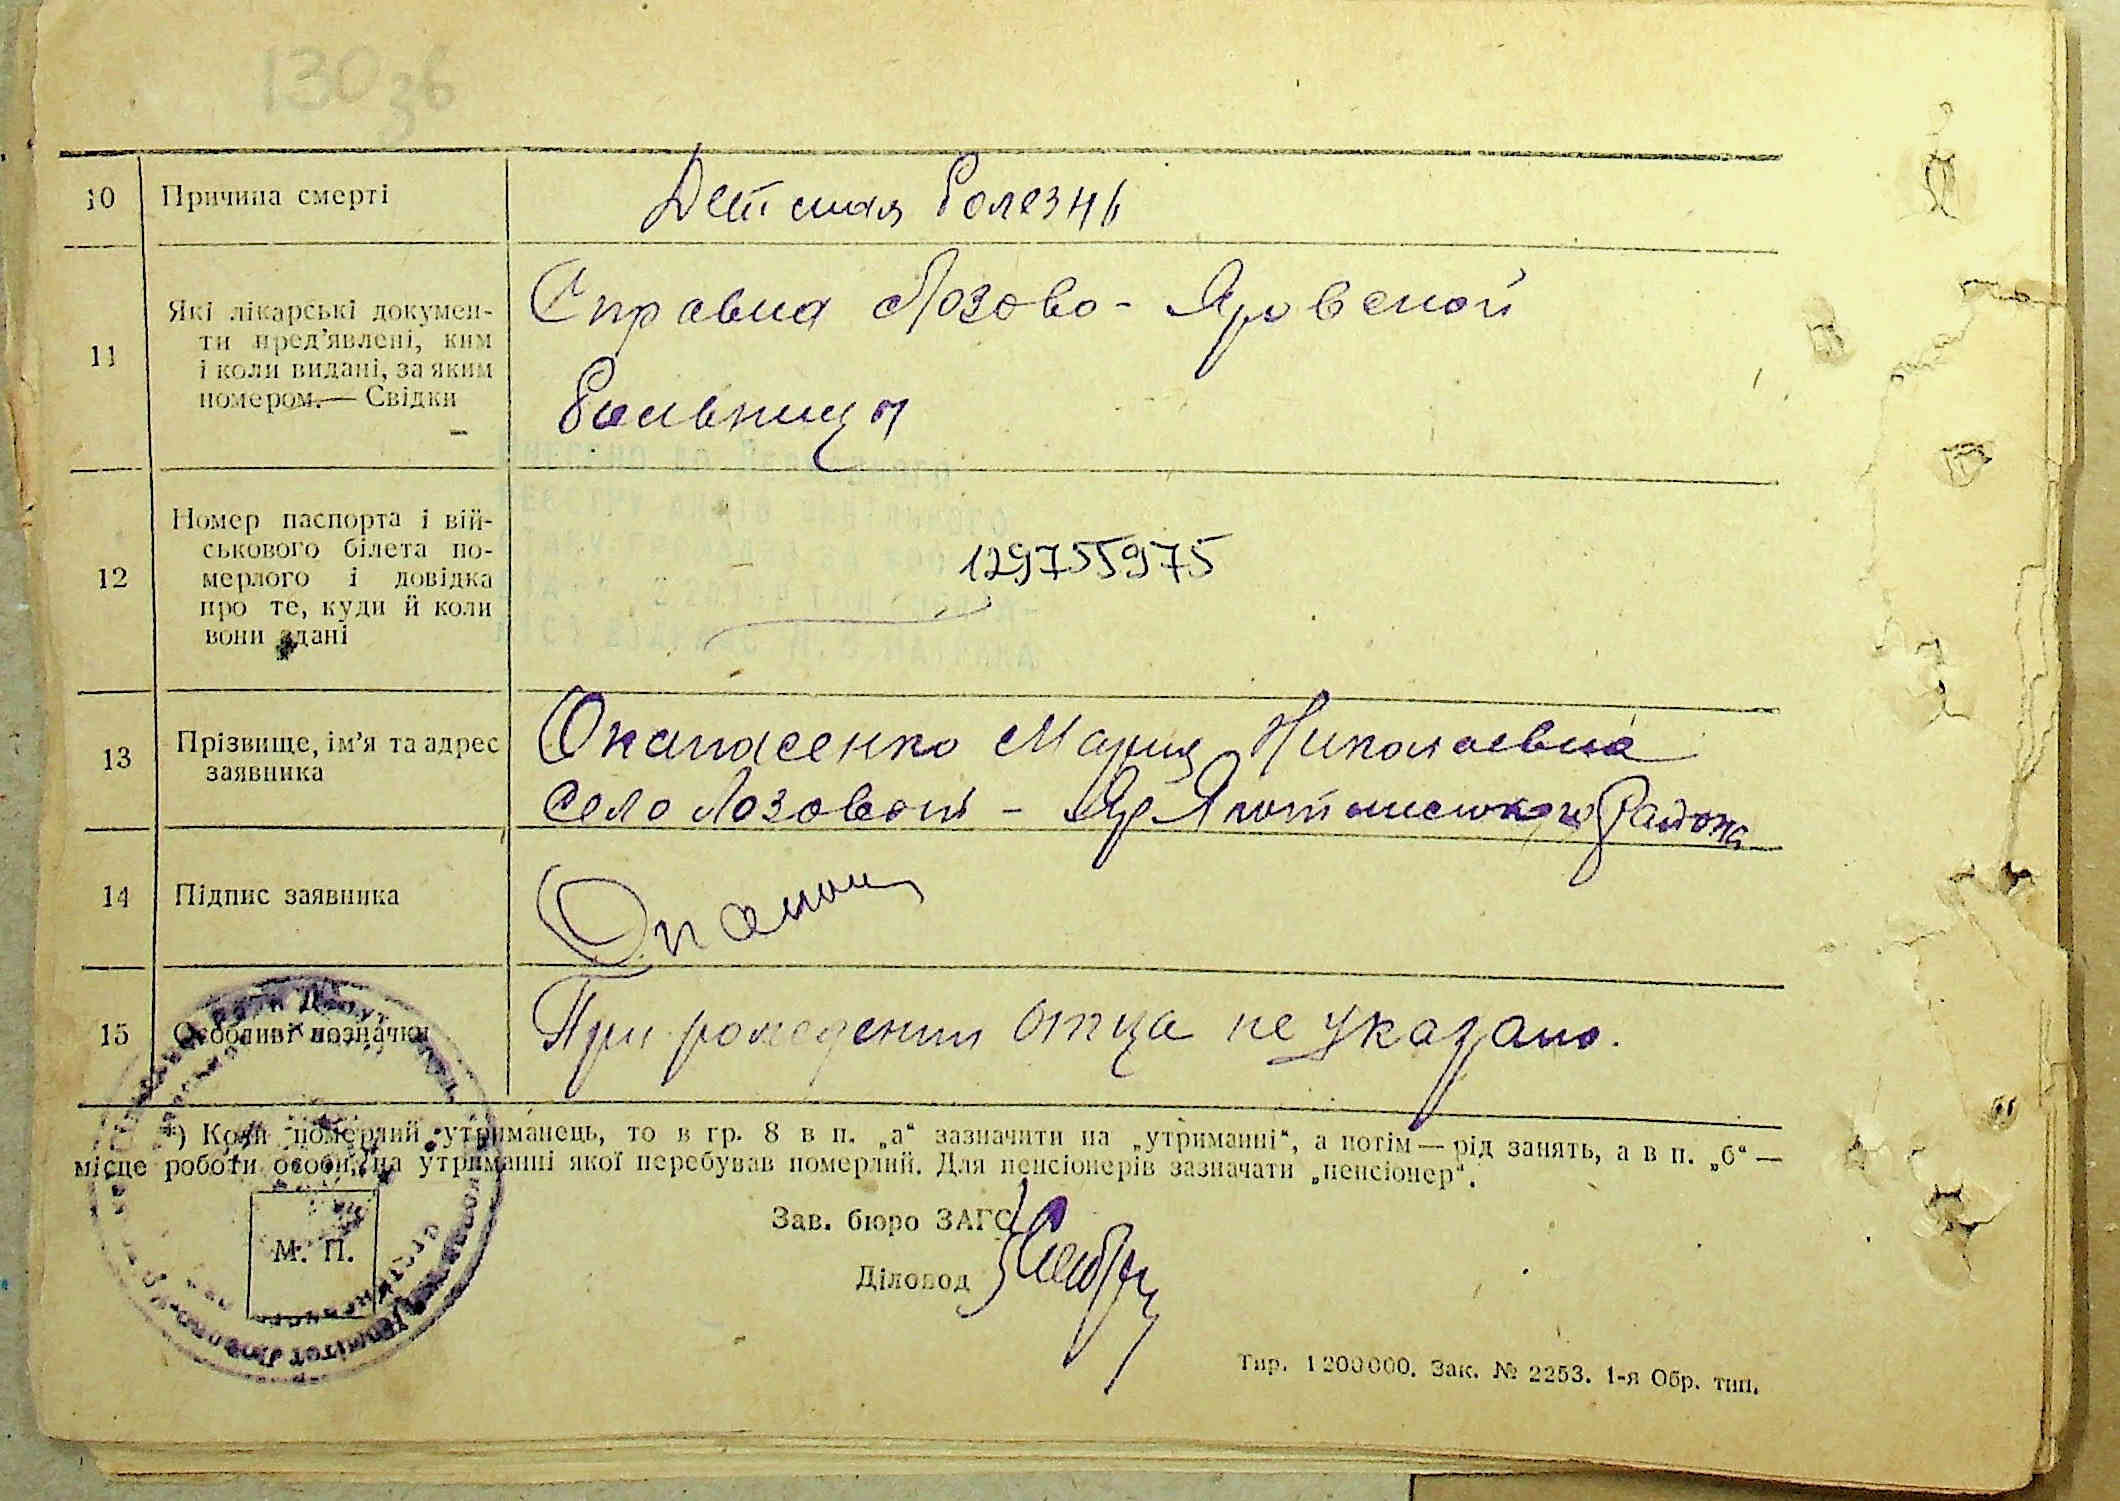 130 36
10 Причина смерті Детская болезнь
11 Які лікарські документи пред'явлені, ким і коли видані, за яким номером.— Свідки
Справка Лозово-Яровской
больници
12 Номер паспорта і військового білета померлого і довідка про те, куди й коли вони здані
129755975
13 Прізвище, ім'я та адрес заявника
Мария Николаевна
село Лозовой - Яр Яготинского Района
14 Підпис заявника
15 Особливі позначки При рождении отца не указано.
*) Коли померлий утриманець, то в гр. 8 в п. „а“ зазначити на „утриманні“, а потім — рід занять, а в п. „б“ —
місце роботи особи, на утриманні якої перебував померлий. Для пенсіонерів зазначати „пенсіонер“.
Зав. бюро ЗАГС
М. П.
Діловод
Тир. 1200000. Зак. № 2253. 1-я Обр. тип.